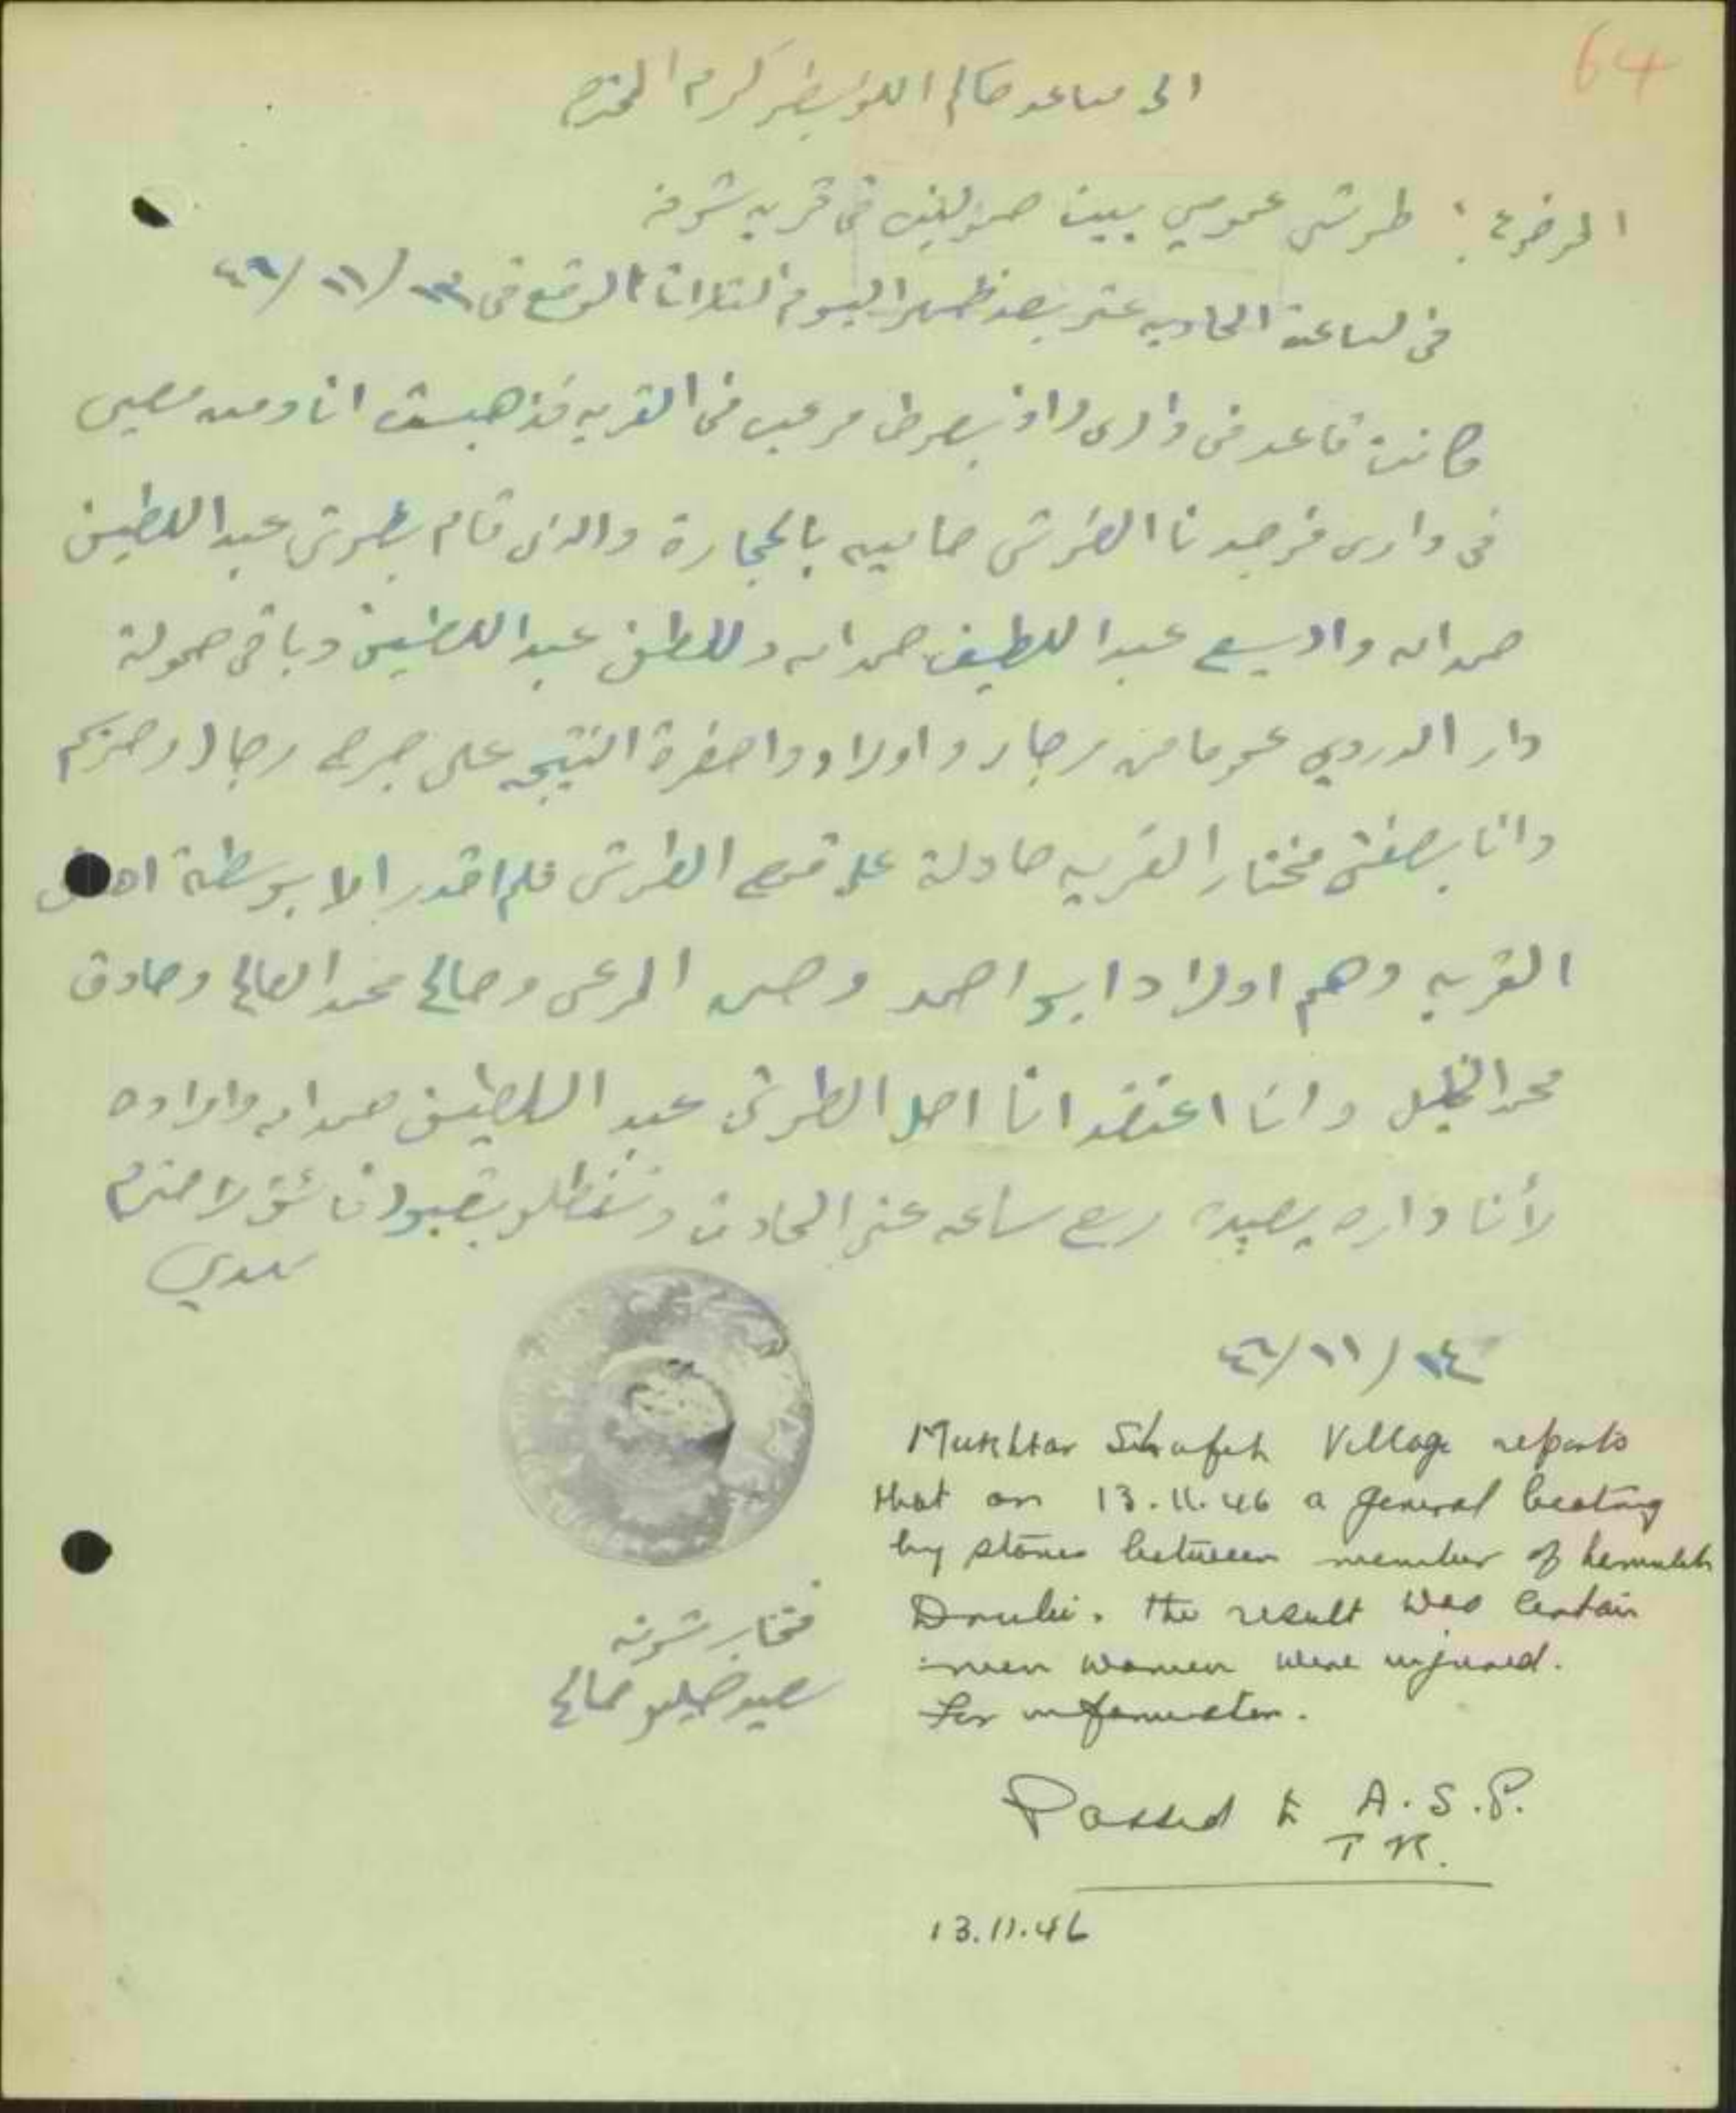 64
الى مساعد حاكم اللواء بطولكرم المحترم
الموضوع: طوشه عمومي بين حمولتين في قرية شوفه
في الساعة الحاديه عشر بعد ظهر اليوم الثلاثاء الوقع في ١٣/١١/٤٦
وكانت قاعد في داري واذ بصوط مرعب في القريه فذهبت انا ومن معيى
في داري فوجدنا الطوش حاميه بالحجارة والذي قام بطوش عبد اللطيف
حمدان واديـع عبد اللطيف حمدان ولطفي عبد اللطيف وباقي حمولة
دار الدروبي عموما من رجال واولاد واصفرة النتيجه على جرح رجال وحريم
وانا بصفتي مختار القريه حاولة على قمع الطوش فلم اقدر الا بوسطة اهل
القريه وهم اولاد ابو احمد وحسن المرعي وصالح محمد الصالح وصادق
محمد الخليل وانا اعتقد انا اصل الطوش عبد اللطيف حمدان واولاده
لأنا داره بعيده ربع ساعه عن الحادث وتفظلو بقبول فائق لاحترام
سيدي
١٤/١١/٤٦
مختار شوفه
سعيد خليل صالح
Mukhtar Shufeh Village reports
that on 13.11.46 a general beating
by stones between member of hamuleh
Drubi. The result was certain
men women were injured.
For information.
Passed to A.S.P.
T K.
13.11.46